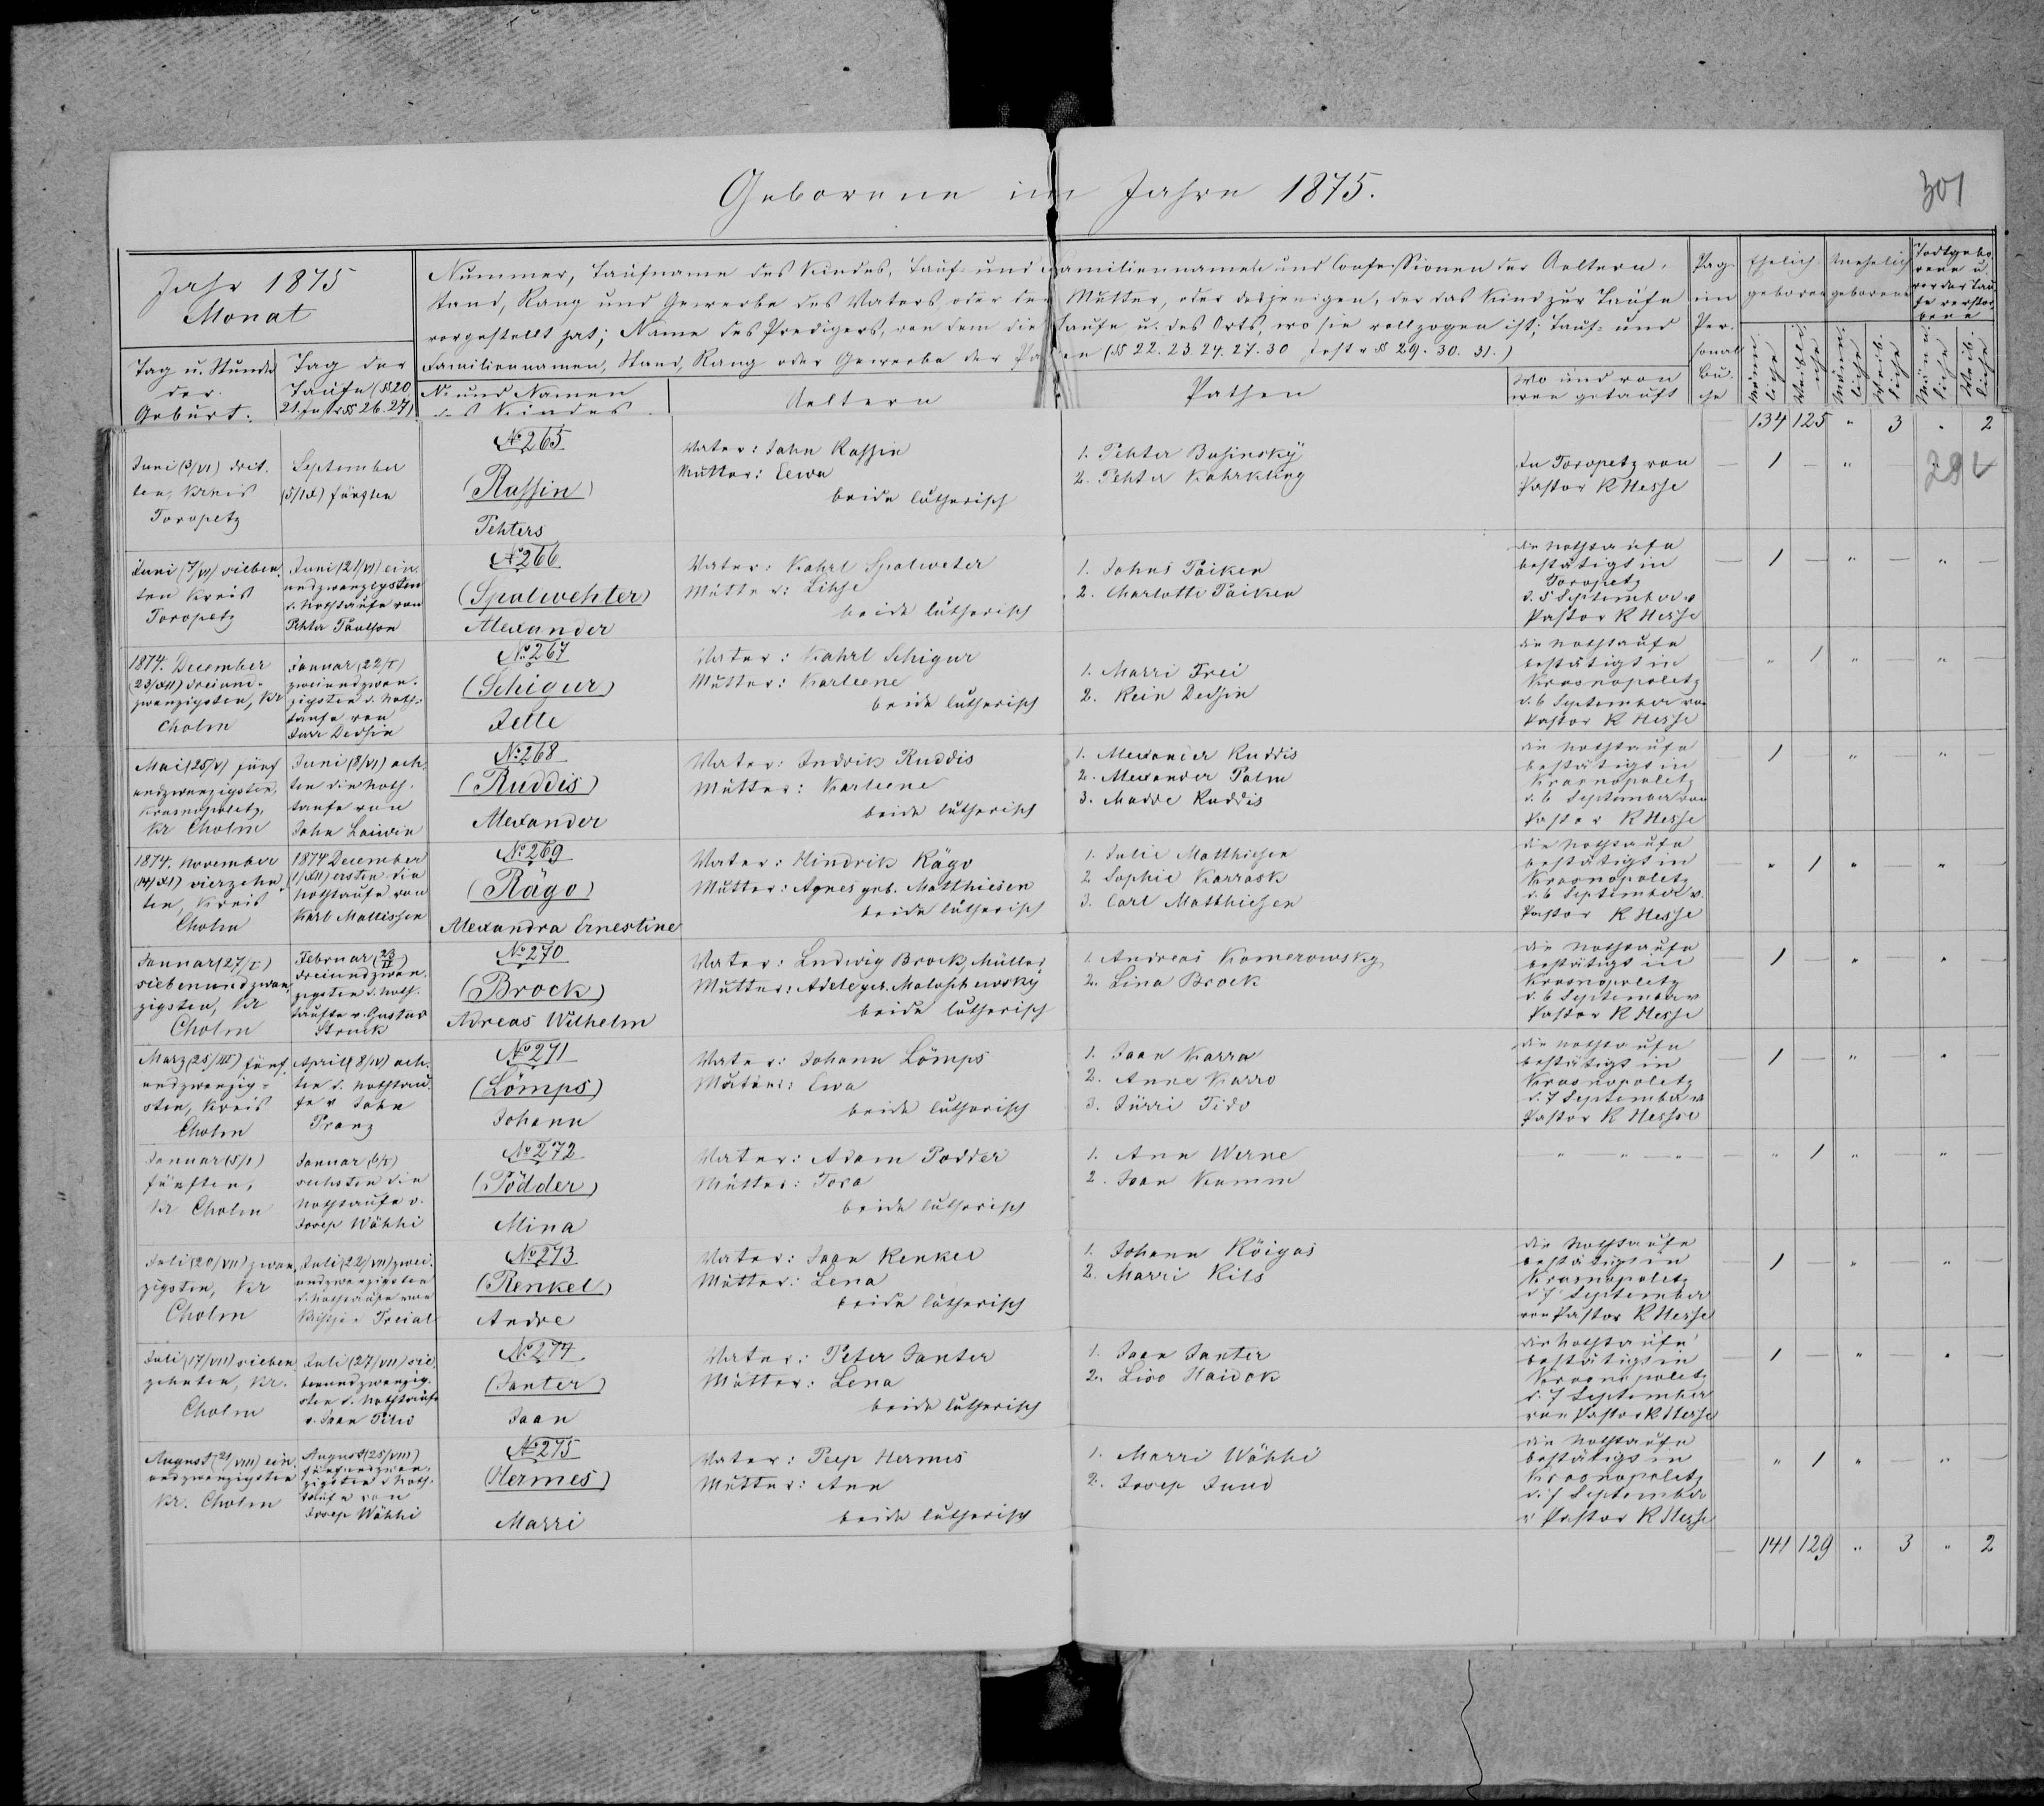 Geborene im Jahre 1875.
301
Jahr 1875
Monat
Tag u. Stunde
der
Geburt.
Tag der
Taufe (§§ 20
21. Instr §§ 26. 27)
Nummer, Taufname des Kindes, Tauf- und Familiennamen und Confessionen der Aeltern,
Stand, Rang und Gewerbe des Vaters oder der Mutter, oder desjenigen, der das Kind zur Taufe
vorgestellt hat; Name des Predigers, von dem die Taufe u. des Orts, wo sie vollzogen ist; Tauf- und
Familiennamen, Stand, Rang oder Gewerbe der Pathen (§§ 22. 23. 24. 27. 30 Instr §§ 29. 30. 31.)
No und Namen
des Kindes.
Aeltern
Pathen
Wo und von
wem getauft
Pag.
im
Per-
sonal
Bu-
che
Ehelich
geboren
Unehelich
geborene
Todtgebo-
rene u.
vor der Tau-
fe verstor-
bene
Männ-
liche
Weibli-
che
Männ-
liche
Weib-
liche
Männ-
liche
Weib-
liche
134 125 " 3 " 2
Juni (3/VI) drit-
ten, Kreis
Toropetz
September
(5/IX) fünften
No 265
(Rassin)
Pehters
Vater: Jahn Rassin
Mutter: Eewa
beide lutherisch
1. Pehter Businsky
2. Pehter Kahrkling
In Toropetz von
Pastor R Hesse
— 1 — "
Juni (7/VI) sieben-
ten Kreis
Toropetz
Juni (21/VI) ein-
undzwanzigsten
d. Nothtaufe von
Pehter Paulson
No 266
(Spalwehter)
Alexander
Vater: Kahrl Spalweter
Mutter: Lihse
beide lutherisch
1. Jahns Paiken
2. Charlotte Paiken
die Nothtaufe
bestätigt in
Toropetz
d. 5 September v
Pastor R Hesse
— 1 — " — " —
1874. December
(23/XII) dreiund-
zwanzigsten, Kr
Cholm
Januar (22/I)
zweiundzwan-
zigsten d. Noth-
taufe von
Jurr Dedsin
No 267
(Schigur)
Jette
Vater: Kahrl Schigur
Mutter: Karleene
beide lutherisch
1. Marri Frei
2. Rein Dedsin
die Nothtaufe
bestätigt in
Krasnopoletz
d. 6 September von
Pastor R Hesse
— " 1 " — " —
Mai (25/V) fünf
undzwanzigsten,
Krasnopoletz,
Kr Cholm
Juni (8/VI) ach-
ten die Noth-
taufe von
Jahn Laiwin
No 268
(Ruddis)
Alexander
Vater: Indrik Ruddis
Mutter: Karleene
beide lutherisch
1. Alexander Ruddis
2. Alexander Palm
3. Madde Ruddis
die Nothtaufe
bestätigt in
Krasnopoletz
d. 6 September von
Pastor R Hesse
— 1 — " — " —
1874. November
(14/XI) vierzehn-
ten, Kreis
Cholm
1874 December
(1/XII) ersten die
Nothtaufe von
Karl Mattissen
No 269
(Rägo)
Alexandra Ernestine
Vater: Hindrik Rägo
Mutter: Agnes geb. Matthiesen
beide lutherisch
1. Julie Matthiesen
2. Sophie Karrask
3. Carl Matthiesen
die Nothtaufe
bestätigt in
Krasnopoletz
d. 6 September v.
Pastor R Hesse
— " 1 " — " —
Januar (27/I)
siebenundzwan-
zigsten, Kr
Cholm
Februar (23/II)
dreiundzwan-
zigsten d. Noth-
taufe v. Gustav
Struck
No 270
(Brock)
Adreas Wilhelm
Vater: Ludwig Brock, Müller
Mutter: Adele geb. Maloschewsky
beide lutherisch
1. Andreas Komerowsky
2. Lina Brock
die Nothtaufe
bestätigt in
Krasnopoletz
d. 6 September v
Pastor R Hesse
— 1 — " — " —
Marz (25/III) fünf-
undzwanzig-
sten, Kreis
Cholm
April (8/IV) ach-
ten d. Nothtau-
fe v Jahn
Pranz
No 271
(Lömps)
Johann
Vater: Johann Lömps
Mutter: Ewa
beide lutherisch
1. Jaan Karra
2. Anne Karro
3. Jürri Tido
die Nothtaufe
bestätigt in
Krasnopoletz
d. 7 September v
Pastor R Hesse
— 1 — " — " —
Januar (5/I)
fünften,
Kr Cholm
Januar (6/I)
sechsten die
Nothtaufe v.
Josep Wähhi
No 272
(Pödder)
Mina
Vater: Adam Podder
Mutter: Tora
beide lutherisch
1. Ann Werne
2. Jaan Kamm
" — " — " — — " 1 " — " —
Juli (20/VII) zwan-
zigsten, Kr
Cholm
Juli (22/VII) zwei-
undzwanzigsten
d. Nothtaufe von
Treial
No 273
(Renkel)
Andre
Vater: Jaan Renkel
Mutter: Lena
beide lutherisch
1. Johann Röigas
2. Marri Kils
die Nothtaufe
bestätigt in
Krasnopoletz
d 7 September
von Pastor R Hesse
— 1 — " — " —
Juli (17/VII) sieben-
zehnten, Kr.
Cholm
Juli (27/VII) sie-
benundzwanzig-
sten d. Nothtaufe
v. Jaan Pilw
No 274
(Janter)
Jaan
Vater: Peter Janter
Mutter: Lena
beide lutherisch
1. Jaan Janter
2. Liso Haidok
die Nothtaufe
bestätigt in
Krasnopoletz
d. 7 September
von Pastor R Hesse
— 1 — " — " —
August (21/VIII) ein-
undzwanzigsten
Kr. Cholm
August (25/VIII)
fünfundzwan-
zigsten d Noth-
taufe von
Josep Wähhi
No 275
(Hermes)
Marri
Vater: Peep Hermes
Mutter: Ann
beide lutherisch
1. Marri Wähhi
2. Josep Jund
die Nothtaufe
bestätigt in
Krasnopoletz
d. 7 September
v Pastor R Hesse
— " 1 " — " —
— 141 129 " 3 " 2